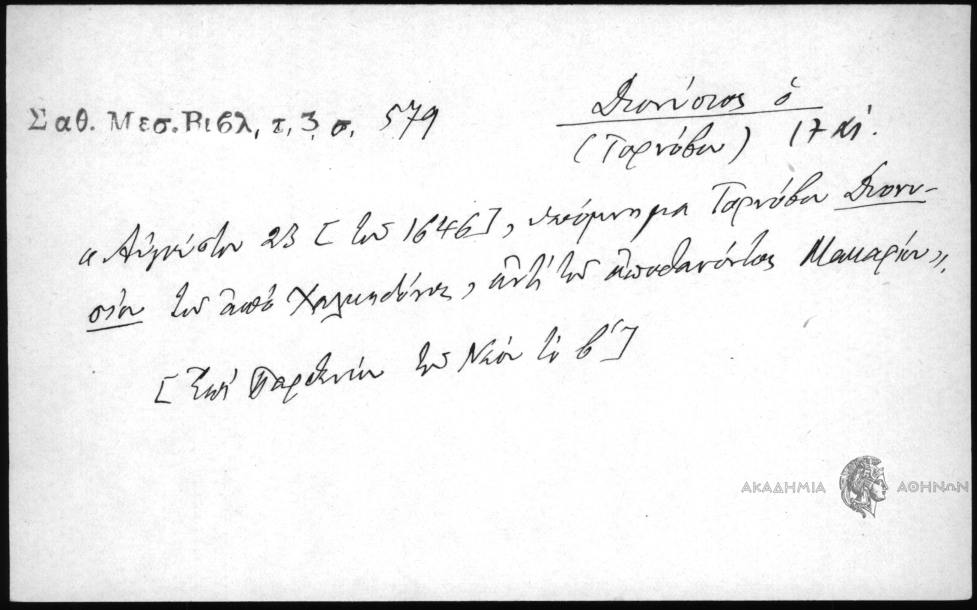 Σαθ. Μεσ. Βιβλ, τ, 3, σ, 579
Διονύσιος ὁ
(Τορνόβου) 17 αἰ.
« Αὐγούστου 23 [τοῦ 1646], ὑπόμνημα Τορνόβου Διονυ-
σίου τοῦ ἀπὸ Χαλκηδόνος, ἀντὶ τοῦ ἀποθανόντος Μακαρίου».
[Ἐπὶ Παρθενίου τοῦ Νέου τὸ β']
ΑΚΑΔΗΜΙΑ ΑΘΗΝΩΝ